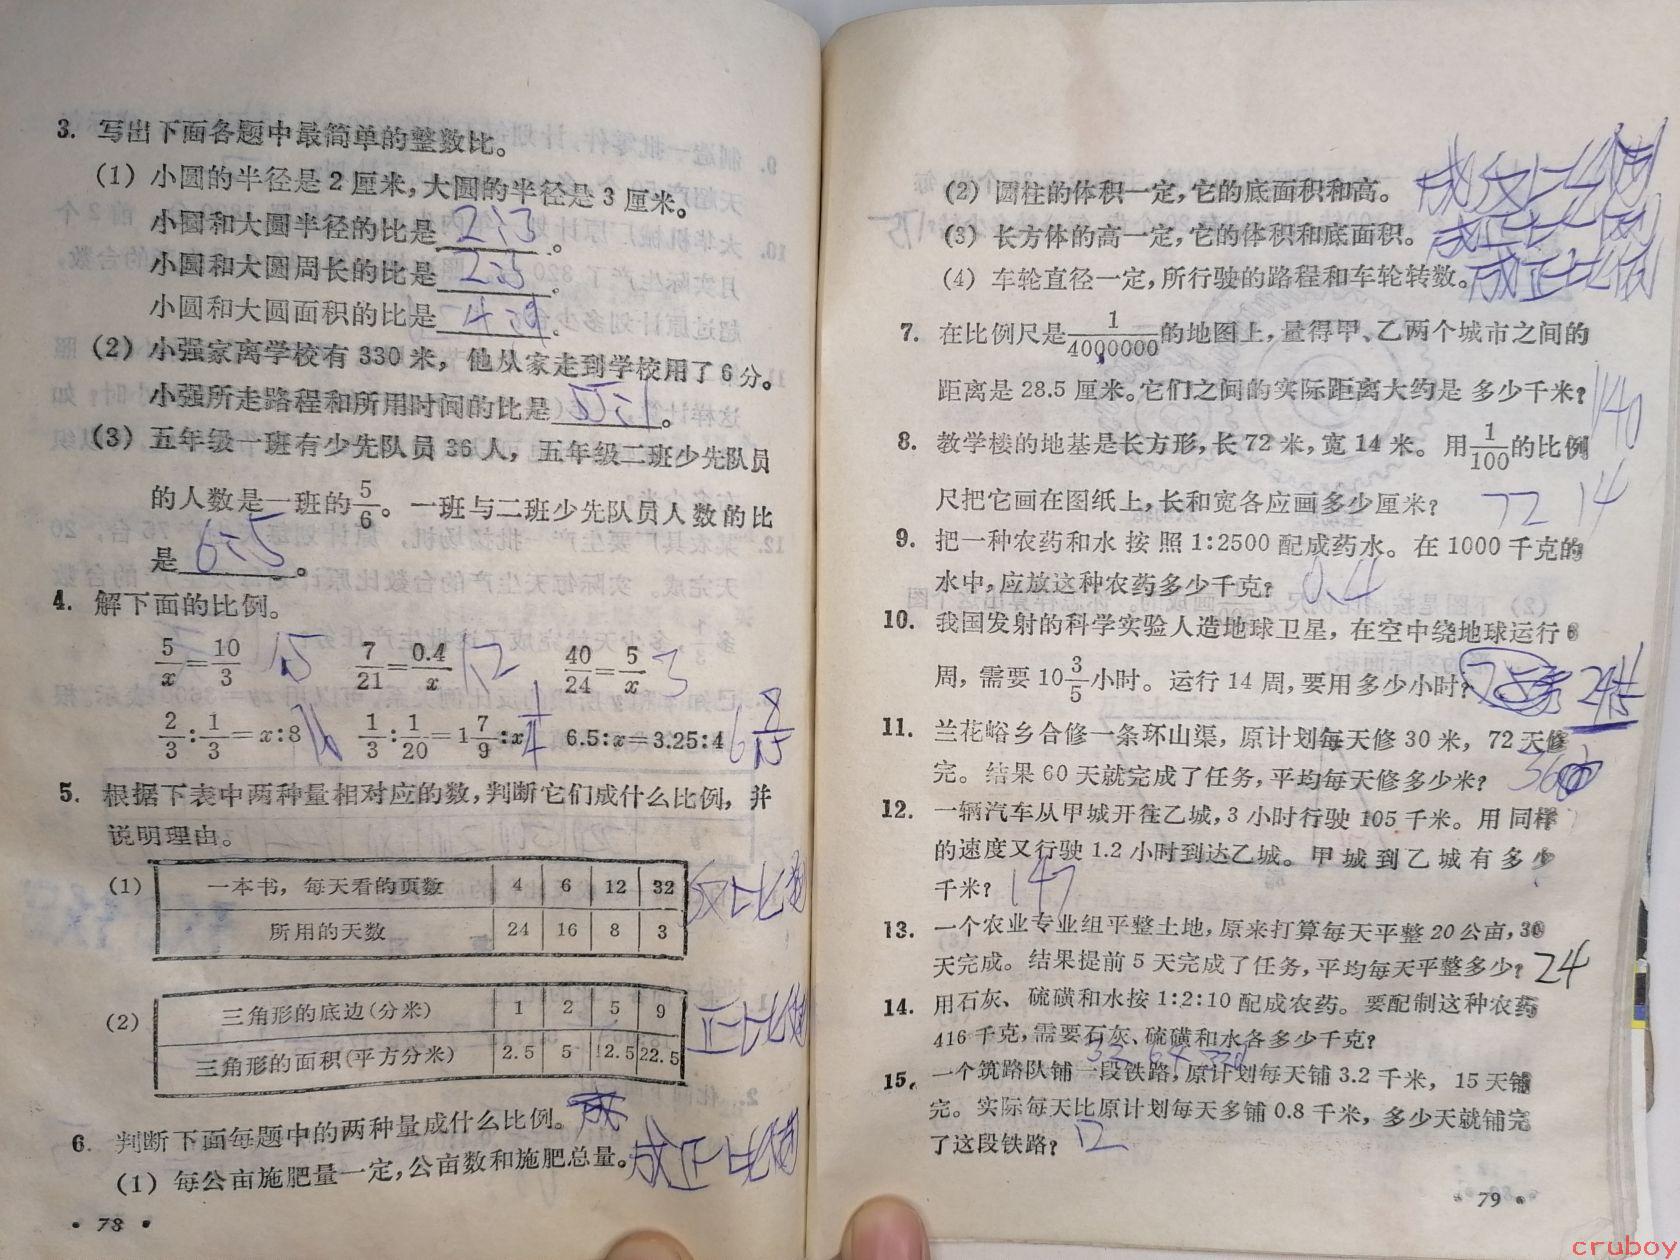 3. 写出下面各题中最简单的整数比。
(1) 小圆的半径是2厘米,大圆的半径是3厘米。
小圆和大圆半径的比是 2:3 。
小圆和大圆周长的比是 2:3 。
小圆和大圆面积的比是 4:9 。
(2) 小强家离学校有330米, 他从家走到学校用了6分。
小强所走路程和所用时间的比是 55:1 。
(3) 五年级一班有少先队员36人, 五年级二班少先队员
的人数是一班的5/6。一班与二班少先队员人数的比
是 6:5 。
4. 解下面的比例。
5/x=10/3 1.5 7/21=0.4/x 1.2 40/24=5/x 3
2/3:1/3=x:8 16 1/3:1/20=1 7/9:x 6.5:x=3.25:4 8
5. 根据下表中两种量相对应的数,判断它们成什么比例, 并
说明理由。
(1) 一本书, 每天看的页数 4 6 12 32 反比例
所用的天数 24 16 8 3
(2) 三角形的底边(分米) 1 2 5 9 正比例
三角形的面积(平方分米) 2.5 5 12.5 22.5
6. 判断下面每题中的两种量成什么比例。
(1) 每公亩施肥量一定,公亩数和施肥总量。成正比例
• 78 •
(2) 圆柱的体积一定,它的底面积和高。 成反比例
(3) 长方体的高一定,它的体积和底面积。 成正比例
(4) 车轮直径一定,所行驶的路程和车轮转数。成正比例
7. 在比例尺是1/4000000的地图上,量得甲、乙两个城市之间的
距离是28.5厘米。它们之间的实际距离大约是多少千米? 1140
8. 教学楼的地基是长方形,长72米,宽14米。用1/100的比例
尺把它画在图纸上,长和宽各应画多少厘米? 72 14
9. 把一种农药和水按照1:2500配成药水。在1000千克的
水中,应放这种农药多少千克? 0.4
10. 我国发射的科学实验人造地球卫星, 在空中绕地球运行6
周, 需要10 3/5小时。运行14周,要用多少小时?
11. 兰花峪乡合修一条环山渠, 原计划每天修30米, 72天修
完。结果60天就完成了任务, 平均每天修多少米? 36
12. 一辆汽车从甲城开往乙城,3小时行驶105千米。用同样
的速度又行驶1.2小时到达乙城。甲城到乙城有多少
千米? 147
13. 一个农业专业组平整土地,原来打算每天平整20公亩,30
天完成。结果提前5天完成了任务,平均每天平整多少? 24
14. 用石灰、硫磺和水按1:2:10配成农药。要配制这种农药
416千克,需要石灰、硫磺和水各多少千克?
32 64 320
15. 一个筑路队铺一段铁路,原计划每天铺3.2千米, 15天铺
完。实际每天比原计划每天多铺0.8千米, 多少天就铺完
了这段铁路? 12
• 79 •
cruboy